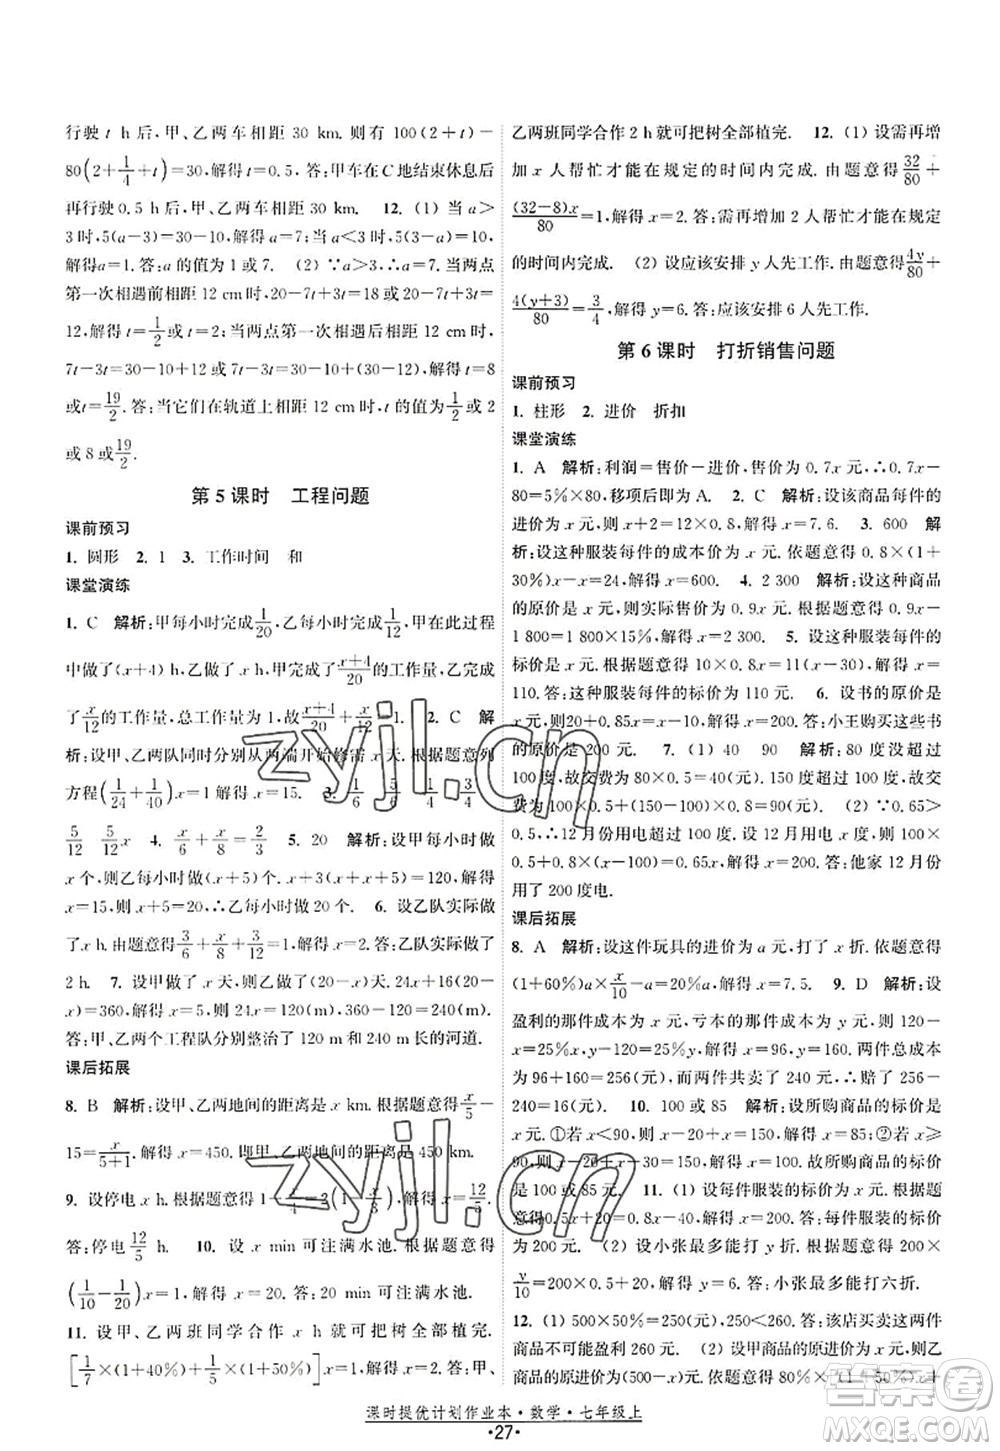 行驶 t h 后,甲、乙两车相距 30 km. 则有 100(2+t)−
80(2+1/4+t),解得 t=0.5. 答:甲车在 C 地结束休息后
再行驶 0.5 h 后,甲、乙两车相距 30 km. 12. (1) 当 a>
3 时,5(a−3)=30−10,解得 a=7;当 a<3 时,5(3−a)=10,
解得 a=1. 答:a 的值为 1 或 7. (2) ∵a>3,∴a=7. 当两点
第一次相遇前相距 12 cm 时,20−7t+3t=18 或 20−7t+3t=
12,解得 t=1/2 或 t=2;当两点第一次相遇后相距 12 cm 时,
7t−3t−(30−10)=12 或 7t−3t−(30−10)=18,解得 t=8
或 t=19/2. 答:当它们在轨道上相距 12 cm 时,t 的值为 1/2 或 2
或 8 或 19/2.
第 5 课时 工程问题
课前预习
1. 圆形 2. 1 3. 工作时间 和
课堂演练
1. C 解析:甲每小时完成 1/20,乙每小时完成 1/12,在此过程
中做了(x+4) h,乙做了 x h,甲完成了 (x+4)/20 的工作量,乙完成
了 x/12 的工作量,总工作量为 1,故 (x+4)/20 + x/12 = 1. 2. C 解
析:设甲、乙两队同时分别从两端开始修需 x 天. 根据题意列
方程(1/24+1/40)x=1,解得 x=15. 3. 1/6 1/4
5/12 5/12 x 4. x/6+x/9=2/3 5. 20 解析:设甲每小时做
x 个,则乙每小时做(x+5)个. 根据题意得 4x+3(x+5)+5=120,解得
x=15,则 x+5=20,∴乙每小时做 20 个. 6. 设乙队实际做
了 x h. 由题意得 3/6+x/6+x/4=x. 答:乙队实际做了
2 h. 7. 设甲做了 x 天,则乙做了(20−x)天. 根据题意得
x)=360,解得 x=5,则 24x=120(m),360−120=240(m).
答:甲、乙两个工程队分别整治了 120 m 和 240 m 的河道.
课后拓展
8. B 解析:设甲、乙两地间的距离是 x km. 根据题意得 x/5−
15=x/(5+1),解得 x=450,即甲、乙两地间的距离是 450 km.
9. 设停电 x h. 根据题意得 1−x/4=2(1−x/3),解得 x=12/5.
答:停电 12/5 h. 10. 设 x min 可注满水池. 根据题意得
(1/10−1/20)x=1,解得 x=20. 答:20 min 可注满水池.
11. 设甲、乙两班同学合作 x h 就可把树全部植完.
[1/7×(1+40%)+1/5×(1+50%)]x=1,解得 x=2. 答:甲、
乙两班同学合作 2 h 就可把树全部植完. 12. (1) 设需再增
加 x 人帮忙才能在规定的时间内完成. 由题意得 32/80+
(32−8)x/80=1,解得 x=2. 答:需再增加 2 人帮忙才能在规定
的时间内完成. (2) 设应该安排 y 人先工作. 由题意得 4y/80+
4(y+3)/80=3/4,解得 y=6. 答:应该安排 6 人先工作.
第 6 课时 打折销售问题
课前预习
1. 柱形 2. 进价 折扣
课堂演练
1. A 解析:利润=售价−进价,售价为 0.7x 元,∴0.7x−
80=5%×80,移项后即为 A. 2. C 解析:设该商品每件的
进价为 x 元,则 x+2=12×0.8,解得 x=7.6. 3. 600 解
析:设这种服装每件的成本价为 x 元. 依题意得 0.8×(1+
30%)x−x=24,解得 x=600. 4. 2 300 解析:设这种商品
的原价是 x 元,则实际售价为 0.9x 元. 依题意得 0.9x−
1 800=1 800×15%,解得 x=2 300. 5. 设这种服装每件的
标价是 x 元. 根据题意得 10×0.8x=11×(x−30),解得 x=
110. 答:这种服装每件的标价为 110 元. 6. 设书的原价是
x 元,则20+0.85x=x−10,解得 x=200. 答:小王购买这些书
的原价是 200 元. 7. (1) 40 90 解析:80 度没有超过
100 度,故交电费为 80×0.5=40(元);超过了 100 度,故交
费为 100×0.5+(150−100)×0.8=90(元). (2) ∵0.65>
0.5,∴12 月份用电超过 100 度. 设 12 月用电 x 度,则 0.65x=
0.5×100+0.8×(x−100),解得 x=200. 答:他家 12 月份
用了 200 度电.
课后拓展
8. A 解析:设这件玩具的进价为 a 元,打了 x 折. 依题意得
(1+60%)a×x/10−a=20%a,解得 x=7.5. 9. D 解析:设
盈利的那件成本为 x 元,亏本的那件成本为 y 元,则 120−x
=25%x,y−120=25%y,解得 x=96,y=160. 两件总成本
为 96+160=256(元),两件共卖了 240 元,∴赔了 256−
240=16(元). 10. 100 或 85 解析:设所购商品的标价是
x 元. ①若 x<90,则 20+x=15,解得 x=85;②若 x≥
90,则 x−20+30+x=190,解得 x=100,故所购商品的标价
是 100 或 85 元. 11. (1) 设每件服装的标价为 x 元,则
0.5x+20=0.8x−40,解得 x=200. 答:每件服装的标价为
200 元. (2) 设小张最多能打 y 折. 根据题意得 200×
y/10=200×0.5+20,解得 y=6. 答:小张最多能打六折.
12. (1) 500×50%=250(元),250<500. 答:该店买卖这两件
商品不可能盈利 500 元. (2) 甲商品的原进价为 500÷(1+
25%)=400(元),乙商品的原进价为 B×(1+50%)x+
课时提优计划作业本·数学·七年级上
·27·
zyjl.cn
zyjl.cn
答案圈
MXQE.COM